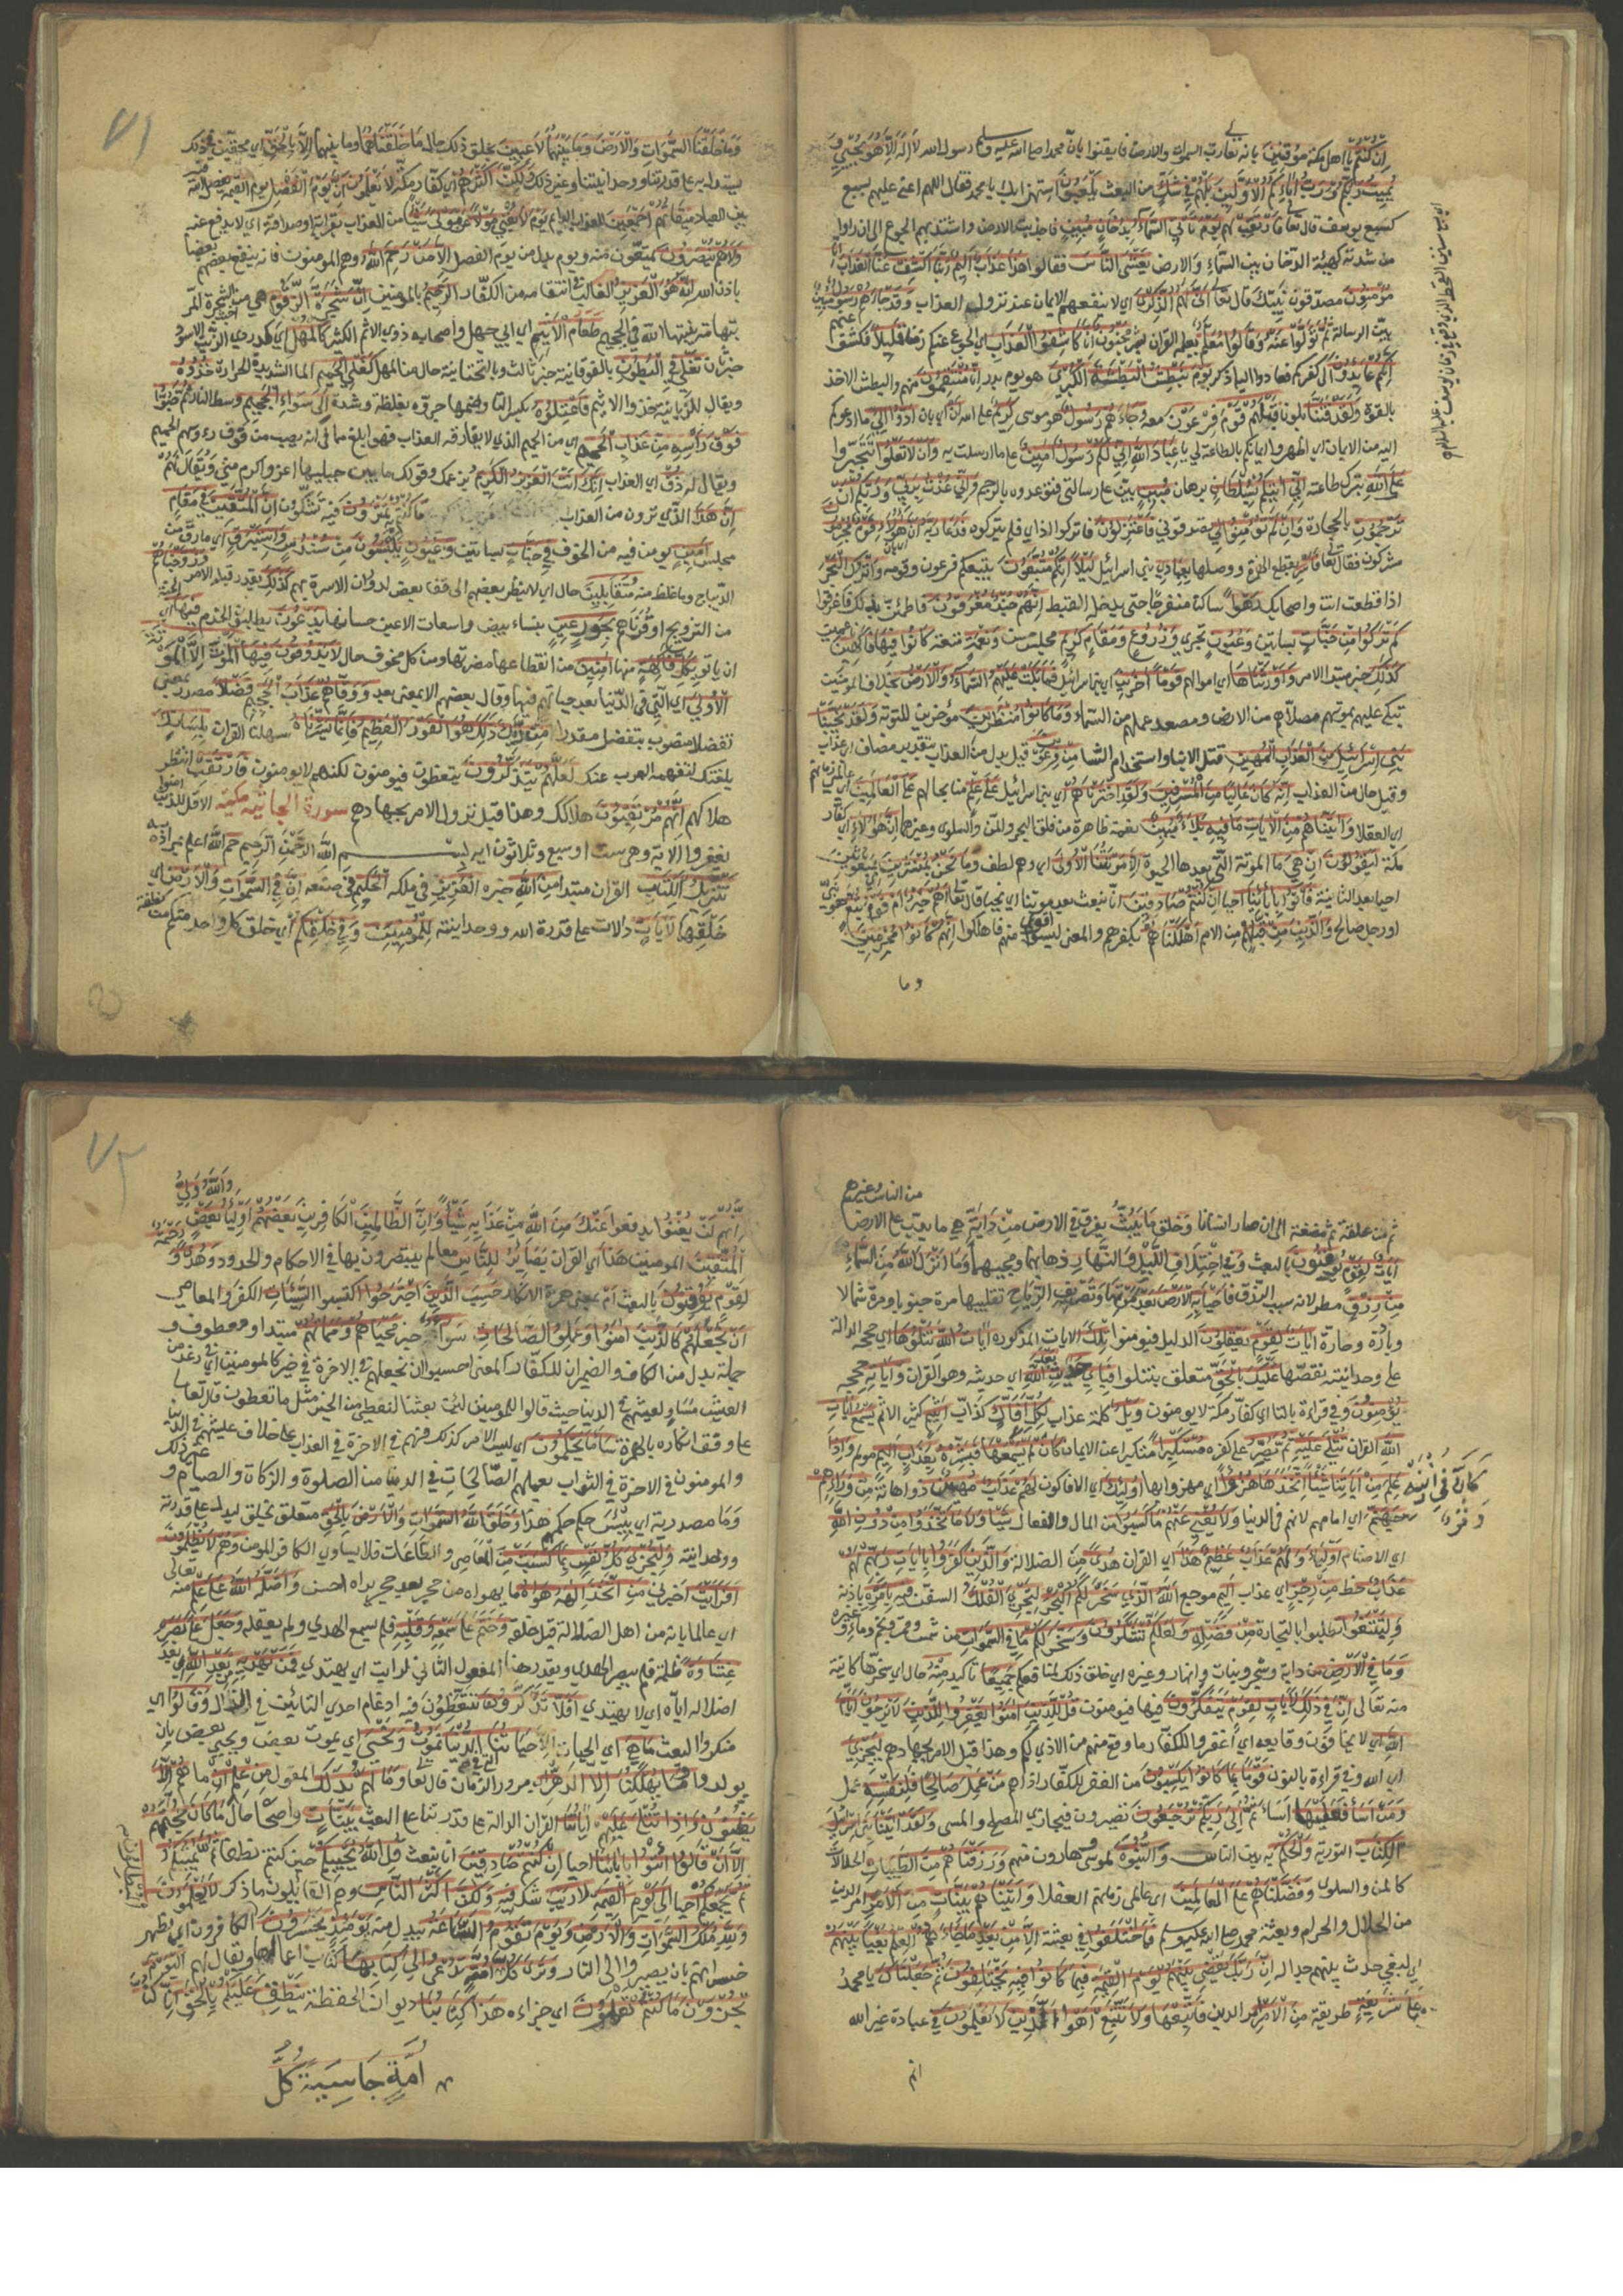 إن كنتم يا اهل مكة موقنين بانه تعالى رب السموات والارض فايقنوا بان محمدا صلى الله عليه وسلم رسول الله لا إله إلا هو يحيي و
يميت ربكم ورب آبائكم الأولين بل هم في شك من البعث يلعبون استهزاء بك يا محمد فقال اللهم اعني عليهم بسبع
كسبع يوسف قال تعالى فارتقب لهم يوم تأتي السماء بدخان مبين فاجدبت الارض واشتد بهم الجوع الى ان راوا
من شدته كهيئة الدخان بين السماء والارض يغشى الناس فقالوا هذا عذاب أليم ربنا اكشف عنا العذاب إنا
مؤمنون مصدقون نبيك قال تعالى أنى لهم الذكرى اي لا ينفعهم الايمان عند نزول العذاب وقد جاءهم رسول مبين
بين الرسالة ثم تولوا عنه وقالوا معلم يعلمه القران بشر مجنون إنا كاشفوا العذاب اي الجوع عنكم زمنا قليلا فكشف عنهم
إنكم عائدون الى كفركم فعادوا اليه اذكر يوم نبطش البطشة الكبرى هو يوم بدر إنا منتقمون منهم والبطش الاخذ
بالقوة ولقد فتنا بلونا قبلهم قوم فرعون معه وجاءهم رسول هو موسى كريم على الله أن اي بان أدوا إلي ما ادعوكم
اليه من الايمان اي اظهروا ايمانكم بالطاعة لي يا عباد الله إني لكم رسول أمين على ما ارسلت به وأن لا تعلوا تتجبروا
على الله بترك طاعته إني آتيكم بسلطان برهان مبين بين على رسالتي فتوعدوه بالرجم وإني عذت بربي وربكم أن
ترجمون بالحجارة وإن لم تؤمنوا لي تصدقوني فاعتزلون فاتركوا اذاي فلم يتركوه فدعا ربه أن هؤلاء قوم مجرمون
مشركون فقال تعالى فأسر بقطع الهمزة ووصلها بعبادي بني اسرائيل ليلا إنكم متبعون يتبعكم فرعون وقومه واترك البحر
اذا قطعت انت واصحابك رهوا ساكنا منفرجا حتى يدخل القبط إنهم جند مغرقون فاطمئن بذلك فاغرقوا
كم تركوا من جنات بساتين وعيون تجري وزروع ومقام كريم مجلس حسن ونعمة متعة كانوا فيها فاكهين
كذلك خبر مبتدا الامر وأورثناها اي اموالهم قوما آخرين اي بني اسرائيل فما بكت عليهم السماء والأرض بخلاف المؤمنين
تبكي عليهم بموتهم مصلاهم من الارض ومصعد عملهم من السماء وما كانوا منظرين مؤخرين للتوبة ولقد نجينا
بني إسرائيل من العذاب المهين قتل الابناء واستخدام النساء من فرعون قيل بدل من العذاب بتقدير مضاف اي عذاب
وقيل حال من العذاب إنه كان عاليا من المسرفين ولقد اخترناهم اي بني اسرائيل على علم منا بحالهم على العالمين اي عالمي زمانهم
اي العقلاء وآتيناهم من الآيات ما فيه بلاء مبين نعمة ظاهرة من فلق البحر والمن والسلوى وغيرهما إن هؤلاء اي كفار
مكة ليقولون إن هي ما الموتة التي بعدها الحيوة إلا موتتنا الأولى اي وهم نطف وما نحن بمنشرين بمبعوثين
احياء بعد الثانية فأتوا بآبائنا احياء إن كنتم صادقين انا نبعث بعد موتتنا اي نحيا قال تعالى أهم خير أم قوم تبع هو نبي
او رجل صالح والذين من قبلهم من الامم أهلكناهم بكفرهم والمعنى ليسوا اقوى منهم فاهلكوا إنهم كانوا مجرمين
وما
٧١
وما خلقنا السموات والأرض وما بينهما لاعبين بخلق ذلك حال ما خلقناهما وما بينهما إلا بالحق اي محقين في ذلك
ليستدل به على قدرتنا ووحدانيتنا وغير ذلك ولكن أكثرهم اي كفار مكة لا يعلمون إن يوم الفصل يوم القيمة يفصل الله فيه
بين العباد ميقاتهم أجمعين للعذاب الدايم يوم لا يغني مولى عن مولى شيئا من العذاب بقرابة او صداقة اي لا يدفع عنه
ولا هم ينصرون يمنعون منه ويوم بدل من يوم الفصل إلا من رحم الله وهم المومنون فانه ينفع بعضهم بعضا
باذن الله إنه هو العزيز الغالب في انتقامه من الكفار الرحيم بالمومنين إن شجرة الزقوم هي من اخبث الشجرة المر
بتهامة ينبتها الله في الجحيم طعام الأثيم اي ابي جهل واصحابه ذوي الاثم الكثير كالمهل اي كدردي الزيت الاسود
خبر ثان تغلي في البطون بالفوقانية خبر ثالث وبالتحتانية حال من المهل كغلي الحميم الماء الشديد الحرارة خذوه
ويقال للزبانية خذوا الاثيم فاعتلوه بكسر التاء وضمها جروه بغلظة وشدة إلى سواء الجحيم وسط النار ثم صبوا
فوق رأسه من عذاب الحميم اي من الحميم الذي لا يفارقه العذاب فهو ابلغ مما في اية يصب من فوق رءوسهم الحميم
ويقال له ذق اي العذاب إنك أنت العزيز الكريم بزعمك وقولك ما بين جبليها اعز واكرم مني ويقال لهم
إن هذا الذي ترون من العذاب ما كنتم به تمترون فيه تشكون إن المتقين في مقام
مجلس أمين يومن فيه من الخوف في جنات بساتين وعيون يلبسون من سندس وإستبرق اي ما رق من
الديباج وما غلظ منه متقابلين حال اي لا ينظر بعضهم الى قفا بعض لدوران الاسرة بهم كذلك يقدر قبله الامر وزوجناهم
من التزويج او قرناهم بحور عين بنساء بيض واسعات الاعين حسانها يدعون يطلبون الخدم فيها اي الجنة
ان ياتوا بكل فاكهة منها آمنين من انقطاعها ومضرتها ومن كل مخوف حال لا يذوقون فيها الموت إلا الموتة
الأولى اي التي في الدنيا بعد حياتهم فيها وقال بعضهم الا بمعنى بعد ووقاهم عذاب الجحيم فضلا مصدر بمعنى
تفضلا منصوب بتفضل مقدرا من ربك ذلك هو الفوز العظيم فإنما يسرناه سهلنا القران بلسانك
بلغتك لتفهمه العرب عنك لعلهم يتذكرون يتعظون فيومنون لكنهم لا يومنون فارتقب انتظر
هلاكهم إنهم مرتقبون هلاكك وهذا قبل نزول الامر بجهادهم سورة الجاثية مكية الا قل للذين امنوا
يغفروا الاية وهي ست او سبع وثلاثون اية بسم الله الرحمن الرحيم حم الله اعلم بمراده به
تنزيل الكتاب القران مبتدا من الله خبره العزيز في ملكه الحكيم في صنعه إن في السموات والأرض اي
خلقهما لآيات دالات على قدرة الله ووحدانيته للمؤمنين وفي خلقكم اي خلق كل واحد منكم من نطفة
من الناس وغيرهم
ثم من علقة ثم مضغة الى ان صار انسانا وخلق ما يبث يفرق في الارض من دابة هي ما يدب على الارض
آيات لقوم يوقنون بالبعث وفي اختلاف الليل والنهار ذهابهما ومجيئهما وما أنزل الله من السماء
من رزق مطر لانه سبب الرزق فأحيا به الأرض بعد موتها وتصريف الرياح تقليبها مرة جنوبا ومرة شمالا
وباردة وحارة آيات لقوم يعقلون الدليل فيومنوا تلك الايات المذكورة آيات الله نتلوها اي حججه الدالة
على وحدانيته نقصها عليك بالحق متعلق بنتلوا فبأي حديث بعد الله اي حديثه وهو القران وآياته حججه
يؤمنون وفي قراءة بالتاء اي كفار مكة لا يومنون ويل كلمة عذاب لكل أفاك كذاب أثيم كثير الاثم يسمع آيات
الله القران تتلى عليه ثم يصر على كفره مستكبرا متكبرا عن الايمان كأن لم يسمعها فبشره بعذاب أليم مولم وإذا
علم من آياتنا شيئا اتخذها هزوا اي مهزوا بها أولئك اي الافاكون لهم عذاب مهين ذو اهانة من ورائهم
كأن في أذنيه وقرا
جهنم اي امامهم لانهم في الدنيا ولا يغني عنهم ما كسبوا من المال والفعال شيئا ولا ما اتخذوا من دون الله
اي الاصنام أولياء ولهم عذاب عظيم هذا اي القران هدى من الضلالة والذين كفروا بآيات ربهم لهم
عذاب حظ من رجز اي عذاب أليم موجع الله الذي سخر لكم البحر لتجري الفلك السفن فيه بأمره باذنه
ولتبتغوا تطلبوا بالتجارة من فضله ولعلكم تشكرون وسخر لكم ما في السموات من شمس وقمر ونجم وماء وغيره
وما في الأرض من دابة وشجر ونبات وانهار وغيره اي خلق ذلك لمنافعكم جميعا تاكيد منه حال اي سخرها كائنة
منه تعالى إن في ذلك لآيات لقوم يتفكرون فيها فيومنون قل للذين آمنوا يغفروا للذين لا يرجون أيام
الله اي لا يخافون وقايعه اي اغفروا للكفار ما وقع منهم من الاذى لكم وهذا قبل الامر بجهادهم ليجزي
اي الله وفي قراءة بالنون قوما بما كانوا يكسبون من الغفر للكفار اذاهم من عمل صالحا فلنفسه عمل
ومن أساء فعليها اساء ثم إلى ربكم ترجعون تصيرون فيجازي المصلح والمسي ولقد آتينا بني إسرائيل
الكتاب التورية والحكم به بين الناس والنبوة لموسى وهارون منهم ورزقناهم من الطيبات الحلالات
كالمن والسلوى وفضلناهم على العالمين اي عالمي زمانهم العقلاء وآتيناهم بينات من الأمر امر الدين
من الحلال والحرام وبعثة محمد صلى الله عليه وسلم فما اختلفوا في بعثته إلا من بعد ما جاءهم العلم بغيا بينهم
اي لبغي حدث بينهم حسدا له إن ربك يقضي بينهم يوم القيمة فيما كانوا فيه يختلفون ثم جعلناك يا محمد
على شريعة طريقة من الأمر امر الدين فاتبعها ولا تتبع أهواء الذين لا يعلمون في عبادة غير الله
انهم
٧٢
والله ولي
إنهم لن يغنوا يدفعوا عنك من الله من عذابه شيئا وإن الظالمين الكافرين بعضهم أولياء بعض
المتقين المومنين هذا اي القران بصائر للناس معالم يتبصرون بها في الاحكام والحدود وهدى ورحمة
لقوم يوقنون بالبعث أم بمعنى همزة الانكار حسب الذين اجترحوا اكتسبوا السيئات الكفر والمعاصي
أن نجعلهم كالذين آمنوا وعملوا الصالحات سواء خبر محياهم ومماتهم مبتدا ومعطوف و
جملة بدل من الكاف والضميران للكفار المعنى احسبوا ان نجعلهم في الاخرة في خير كالمومنين اي في رغد من
العيش مساو لعيشهم في الدنيا حيث قالوا للمومنين لئن بعثنا لنعطى من الخير مثل ما تعطون قال تعالى
على وفق انكاره بالهمزة ساء ما يحكمون اي ليس الامر كذلك فهم في الاخرة في العذاب على خلاف عيشهم في الدنيا
والمومنون في الاخرة في الثواب بعملهم الصالحات في الدنيا من الصلوة والزكاة والصيام وغير ذلك
وما مصدرية اي بئس حكما حكمهم هذا وخلق الله السموات والأرض بالحق متعلق بخلق ليدل على قدرته
ووحدانيته ولتجزى كل نفس بما كسبت من المعاصي والطاعات فلا يساوي الكافر المومن وهم لا يظلمون
أفرأيت اخبرني من اتخذ إلهه هواه ما يهواه من حجر بعد حجر يراه احسن وأضله الله على علم منه تعالى
اي عالما بانه من اهل الضلالة قبل خلقه وختم على سمعه وقلبه فلم يسمع الهدى ولم يعقله وجعل على بصره
غشاوة ظلمة فلم يبصر الهدى ويقدر هنا المفعول الثاني لرايت اي يهتدي فمن يهديه من بعد الله اي بعد
اضلاله اياه اي لا يهتدي أفلا تذكرون تتعظون فيه ادغام احدى التائين في الذال وقالوا اي
منكروا البعث ما هي اي الحياة إلا حياتنا التي في الدنيا نموت ونحيى اي يموت بعض ويحيى بعض بان
يولدوا وما يهلكنا إلا الدهر اي مرور الزمان قال تعالى وما لهم بذلك المقول من علم إن ما هم إلا
يظنون وإذا تتلى عليهم آياتنا القران الدالة على قدرتنا على البعث بينات واضحات حال ما كان حجتهم
إلا أن قالوا ائتوا بآبائنا احياء إن كنتم صادقين انا نبعث قل الله يحييكم حين كنتم نطفا ثم يميتكم
ثم يجمعكم احياء إلى يوم القيمة لا ريب شك فيه ولكن أكثر الناس وهم القائلون ما ذكر لا يعلمون
ولله ملك السموات والأرض ويوم تقوم الساعة يبدل منه يومئذ يخسر المبطلون الكافرون اي يظهر
خسرانهم بان يصيروا الى النار وترى كل أمة كل أمة تدعى إلى كتابها كتاب اعمالها ويقال لهم اليوم
تجزون ما كنتم تعملون اي جزاءه هذا كتابنا ديوان الحفظة ينطق عليكم بالحق إنا كنا
أمة جاسية كل